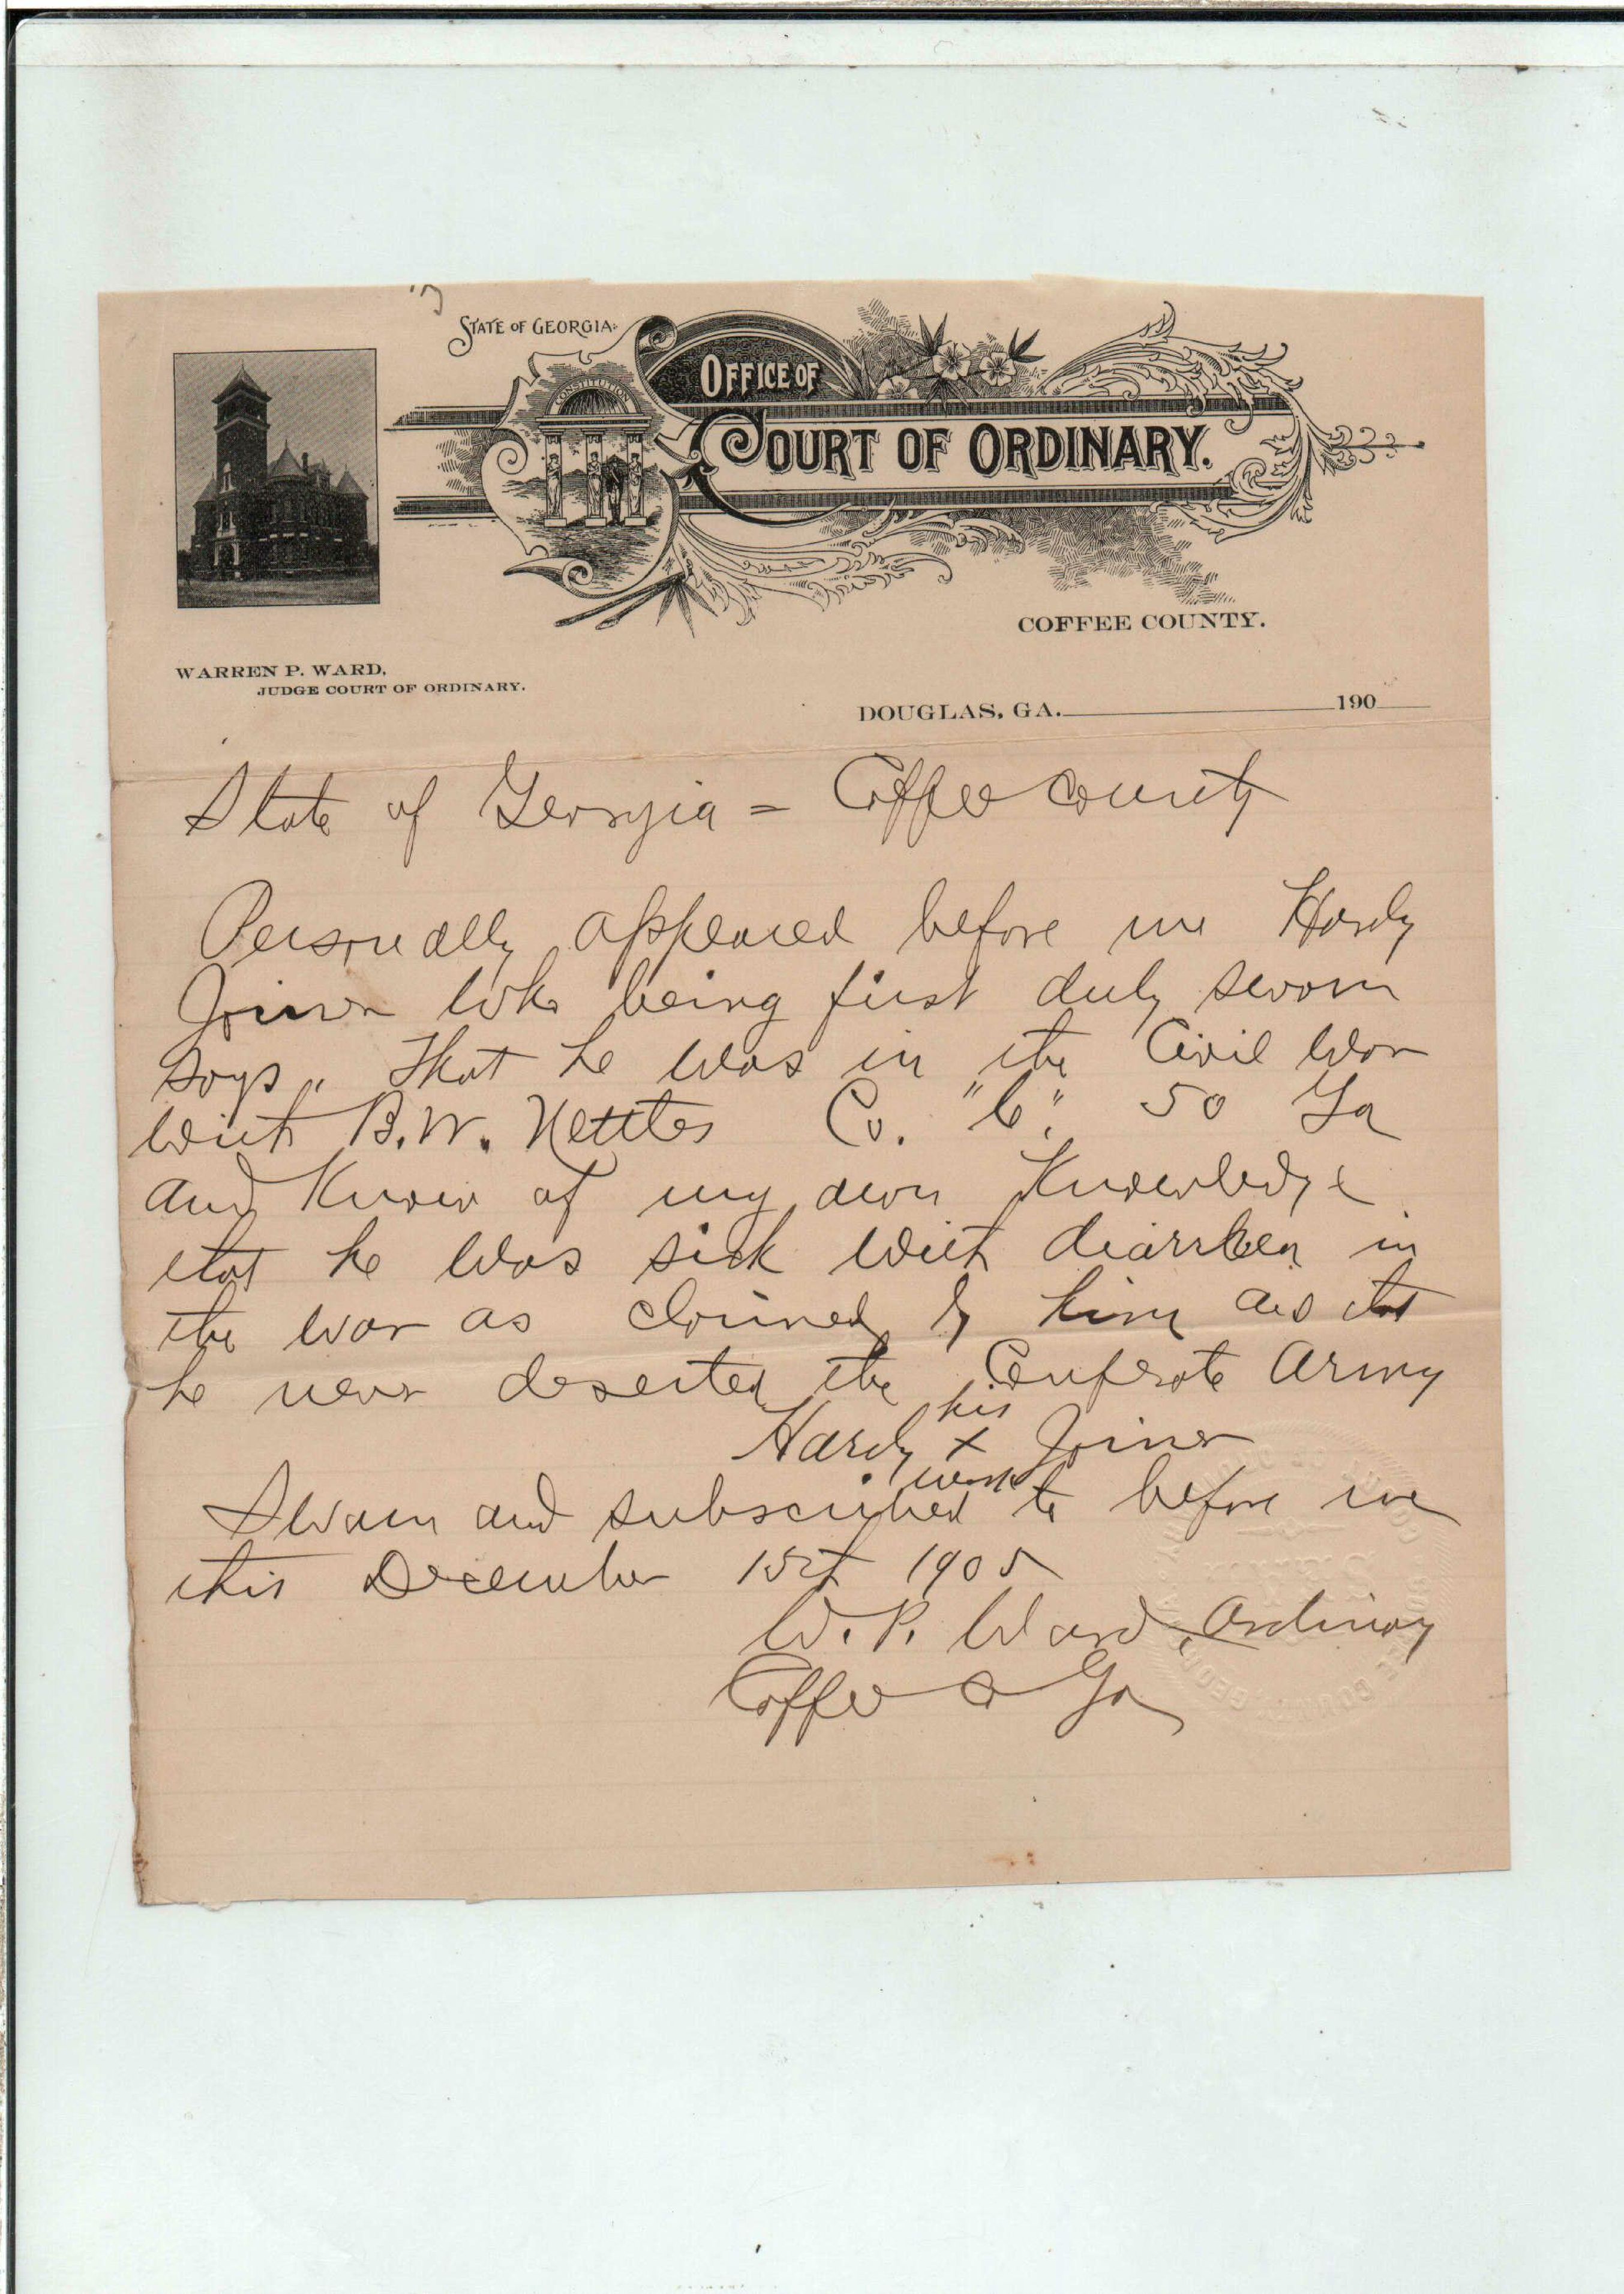 STATE OF GEORGIA
CONSTITUTION
OFFICE OF
COURT OF ORDINARY.
COFFEE COUNTY.
WARREN P. WARD,
JUDGE COURT OF ORDINARY.
DOUGLAS, GA. 190
State of Georgia = Coffee County
Personally appeared before me Hardy
Joiner who being first duly sworn
says, that he was in the Civil War
with B.W. Nettles Co. "C" 50 Ga
and Know of my own Knowledge
that he was sick with diarrhea in
the war as claimed by him and that
he never deserted the Confrate Army
his
Hardy x Joiner
mark
Sworn and subscribed to before me
this December 15th 1905
W. P. Ward, Ordinary
Coffee Co Ga